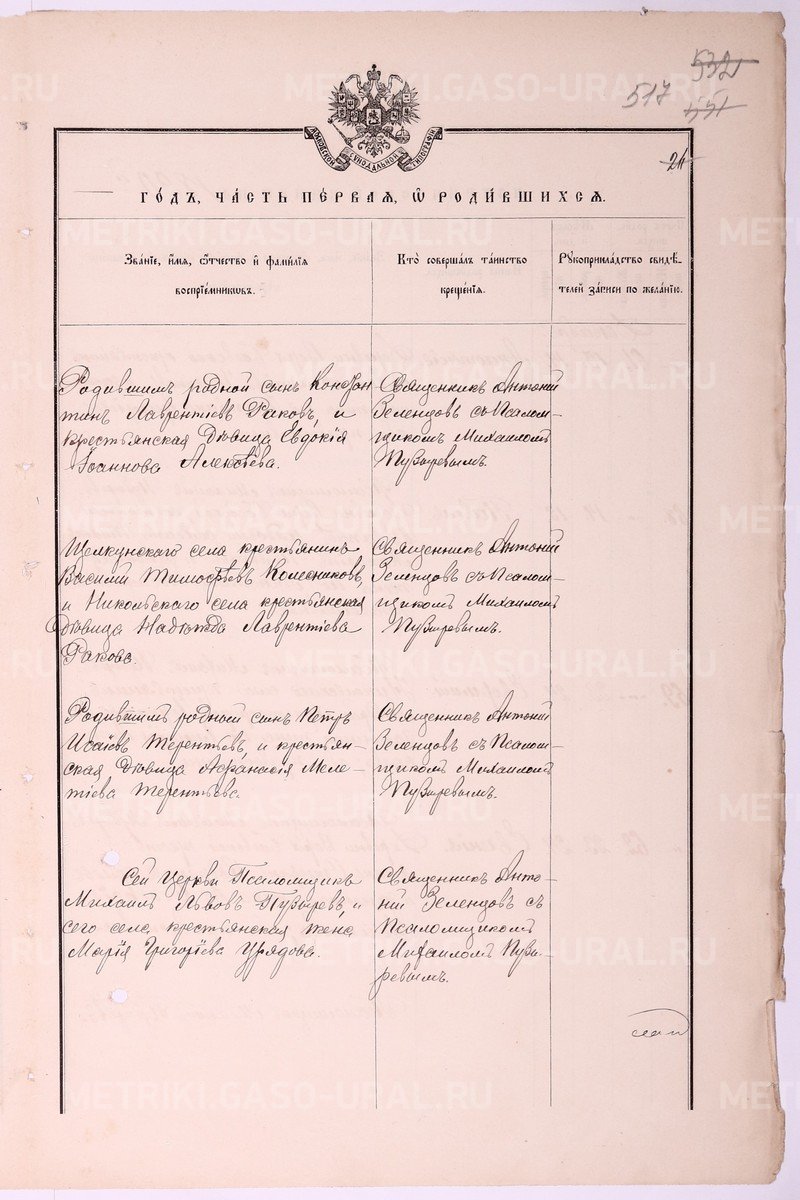 METRIKI.GASO-URAL.RU
532
517 551
МОСКОВСКОЙ СѴНОДАЛЬНОЙ ТИПОГРАФІИ
24
ГО́ДЪ, ЧА́СТЬ ПЕ́РВАЯ, Ѿ РОДИ́ВШИХСЯ.
Зва́нїе, и́мя, ѻ́тчество и҆ фами́лїя
воспрїе́мникѡвъ.
Кто̀ соверша́лъ та́инство
креще́нїя.
Рꙋкоприкла́дство свидѣ́-
телей за́писи по жела́нїю.
Родившимъ родной сынъ Констан
тинъ Лаврентіевъ Раковъ, и
крестьянская дѣвица Евдокія
Іоаннова Алексѣева.
Священникъ Антоній
Зеленцовъ съ Псалом-
щикомъ Михаиломъ
Пузыревымъ.
Щелкунскаго села крестьянинъ
Василій Тимоѳѣевъ Колесниковъ,
и Никольскаго села крестьянская
дѣвица Надежда Лаврентіева
Ракова.
Священникъ Антоній
Зеленцовъ съ Псалом-
щикомъ Михаиломъ
Пузыревымъ.
Родившимъ родной сынъ Петръ
Исаіевъ Терентьевъ, и крестьян-
ская дѣвица Аѳанасія Меле-
тіева Терентьева.
Священникъ Антоній
Зеленцовъ съ Псалом-
щикомъ Михаиломъ
Пузыревымъ.
Сей Церкви Псаломщикъ
Михаилъ Львовъ Пузыревъ, и
сего села крестьянская жена
Марія Григоріева Урядова.
Священникъ Анто-
ній Зеленцовъ съ
Псаломщикомъ
Михаиломъ Пузы-
ревымъ.